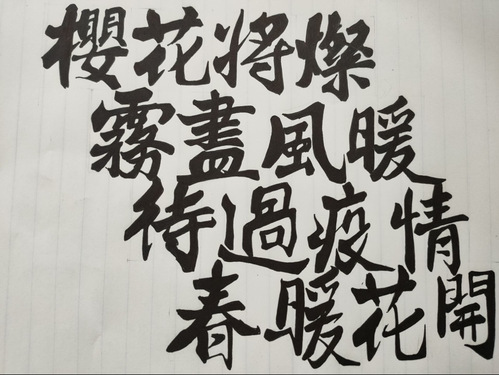 櫻花將燦
霧盡風暖
待過疫情
春暖花開